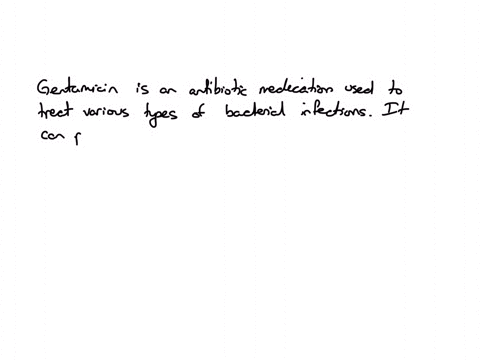 Gentamicin is an antibiotic medication used to
treat various types of bacterial infections. It
can